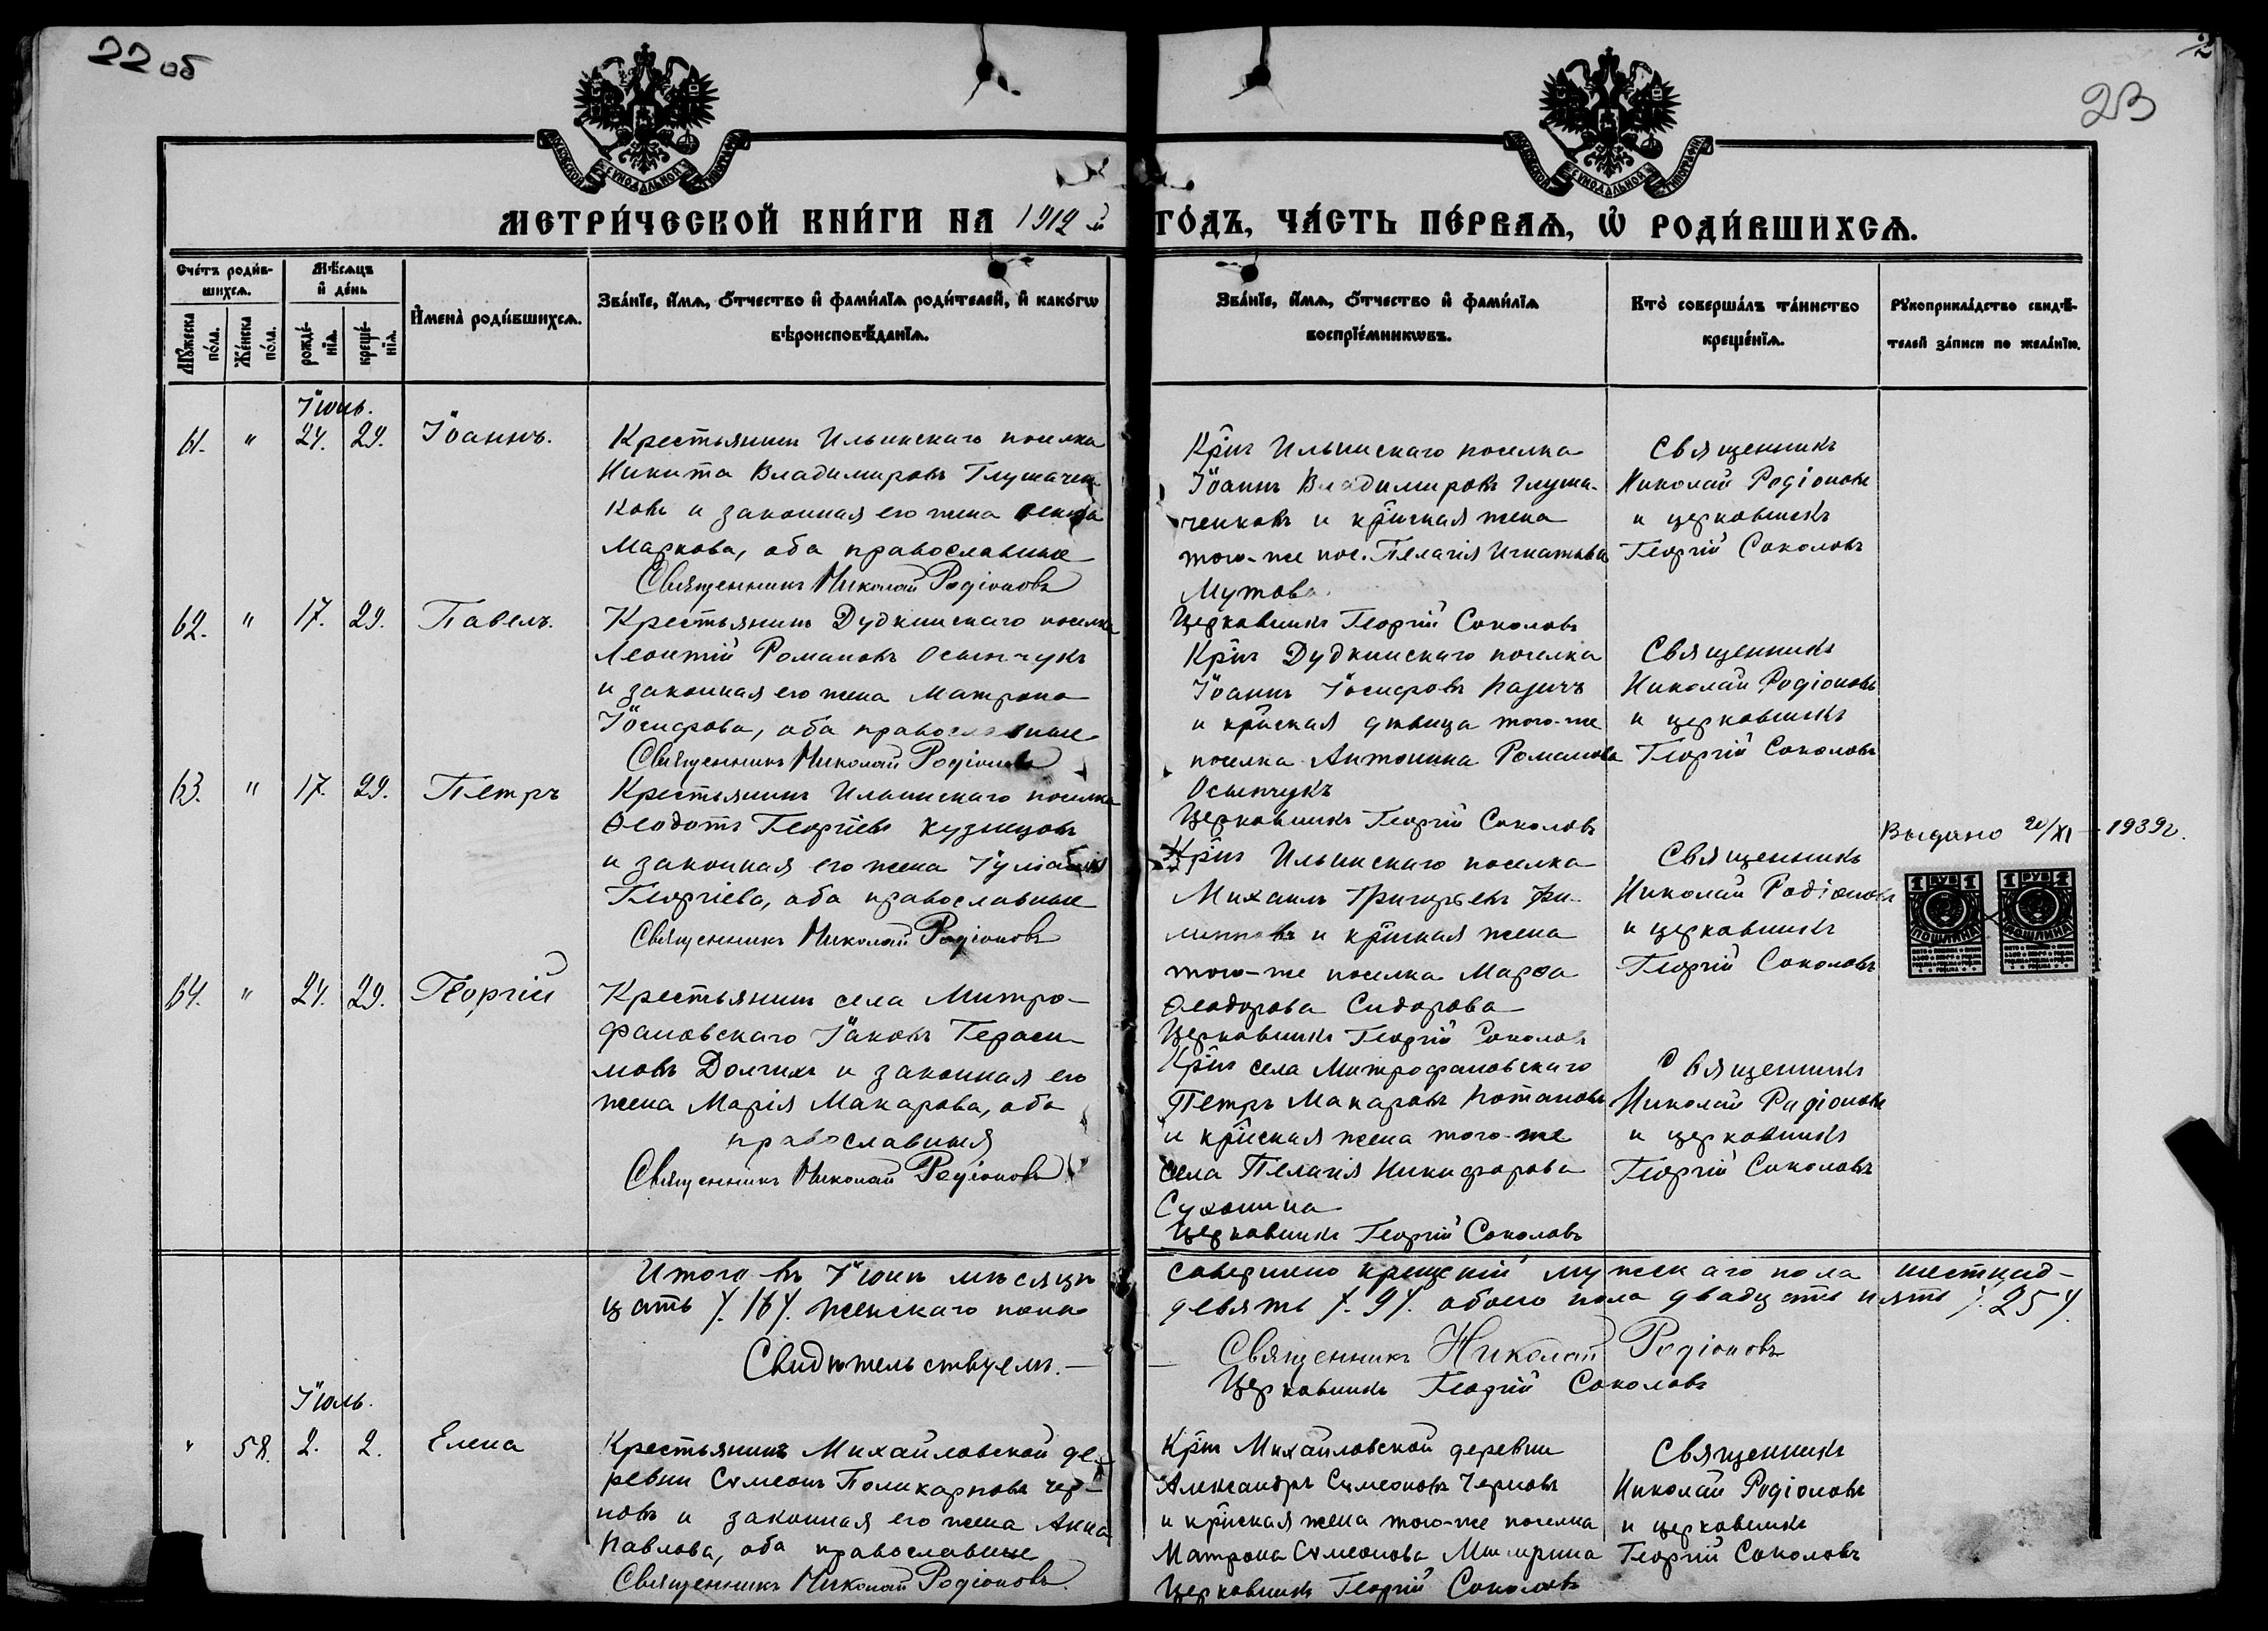 22 об
23
МЕТРИ́ЧЕСКОЙ КНИ́ГИ НА 1912 й ГО́ДЪ, ЧА́СТЬ ПЕ́РВАѦ, Ѡ҆ РОДИ́ВШИХСѦ.
Сче́тъ роди́вшихсѧ.
Мѣ́сѧцъ и҆ де́нь
Мꙋ́жеска по́ла.
Же́нска по́ла.
рожде́нїѧ.
креще́нїѧ.
И҆мена̀ роди́вшихсѧ.
Зва́нїе, и҆́мѧ, ѻ҆́тчество и҆ фами́лїѧ роди́телей, и҆ како́гѡ
вѣроисповѣ́данїѧ.
Зва́нїе, и҆́мѧ, ѻ҆́тчество и҆ фами́лїѧ
воспрїе́мникѡвъ.
Кто̀ соверша́лъ та́инство
креще́нїѧ.
Рꙋкоприкла́дство свидѣ́-
телей за́писи по жела́нїю.
Іюнь.
61. " 24. 29. Іоаннъ.
Крестьянинъ Ильинскаго поселка
Никита Владимировъ Глушачен
ковъ и законная его жена
Маркова, оба православные
Священникъ Николай Родіоновъ
Кр̃нъ Ильинскаго поселка
Іоаннъ Владимировъ Глуша-
ченковъ и кр̃нская жена
того-же пос. Пелагія Игнатьева
Мутова
Церковникъ Георгій Соколовъ
Священникъ
Николай Родіоновъ
и церковникъ
Георгій Соколовъ
62. " 17. 29. Павелъ.
Крестьянинъ Дудкинскаго поселка
Леонтій Романовъ Осыпчукъ
и законная его жена Матрона
Іосифова, оба православные
Священникъ Николай Родіоновъ
Кр̃нъ Дудкинскаго поселка
Іоаннъ Іосифовъ
и кр̃нская дѣвица того-же
поселка Антонина Романова
Осыпчукъ
Церковникъ Георгій Соколовъ
Священникъ
Николай Родіоновъ
и церковникъ
Георгій Соколовъ
63. " 17. 29. Петръ
Крестьянинъ Ильинскаго поселка
Ѳеодотъ Георгіевъ Кузнецовъ
и законная его жена Іуліанія
Георгіева, оба православные
Священникъ Николай Родіоновъ
Кр̃нъ Ильинскаго поселка
Михаилъ Григорьевъ Фи-
липповъ и кр̃нская жена
того-же поселка Марѳа
Ѳеодорова Сидорова
Церковникъ Георгій Соколовъ
Священникъ
Николай Родіоновъ
и церковникъ
Георгій Соколовъ
Выдано 20/XI - 1939г.
1 РУБ 1
ПОШЛИНА
1 РУБ 1
ПОШЛИНА
64. " 24. 29. Георгій
Крестьянинъ села Митро-
фановскаго Іаковъ Гераси-
мовъ Долгихъ и законная его
жена Марія Макарова, оба
православныя
Священникъ Николай Родіоновъ
Кр̃нъ села Митрофановскаго
Петръ Макаровъ Потаповъ
и кр̃нская жена того-же
села Пелагія Никифорова
Сухонина
Церковникъ Георгій Соколовъ
Священникъ
Николай Родіоновъ
и церковникъ
Георгій Соколовъ
Итого въ Іюнѣ мѣсяцѣ совершено крещеній мужескаго пола шестнад-
цать /. 16 /. женскаго пола девять /. 9 /. обоего пола двадцать пять /. 25 /.
Свидѣтельствуемъ. — Священникъ Николай Родіоновъ
Церковникъ Георгій Соколовъ
Іюль.
" 58. 2. 2. Елена
Крестьянинъ Михайловской де-
ревни Сѵмеонъ Поликарповъ Чер-
новъ и законная его жена Анна
Павлова, оба православные
Священникъ Николай Родіоновъ
Кр̃нъ Михайловской деревни
Александръ Сѵмеоновъ Черновъ
и кр̃нская жена того-же поселка
Матрона Сѵмеонова
Церковникъ Георгій Соколовъ
Священникъ
Николай Родіоновъ
и церковникъ
Георгій Соколовъ